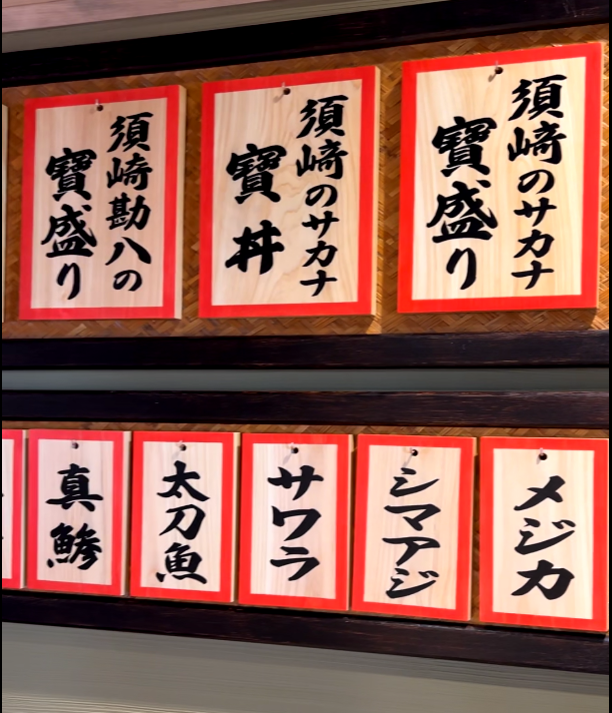 須崎のサカナ
寶盛り
須崎のサカナ
寶丼
須崎勘八の
寶盛り
メジカ
シマアジ
サワラ
太刀魚
真鯵